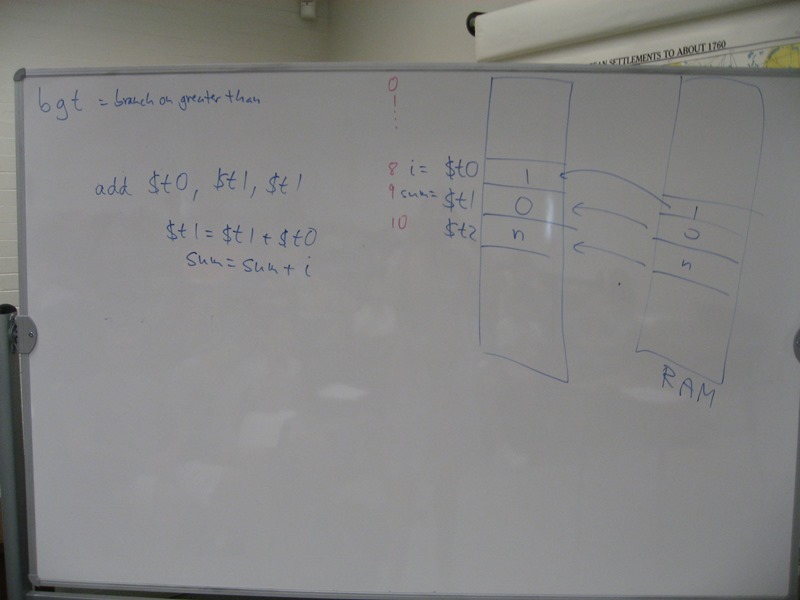 EAN SETTLEMENTS TO ABOUT 1760
bgt = branch on greater than
add $t0, $t1, $t1
$t1 = $t1 + $t0
sum = sum + i
0
1
8 i = $t0 1
9 sum = $t1 0
10 $t2 n
1
0
n
RAM